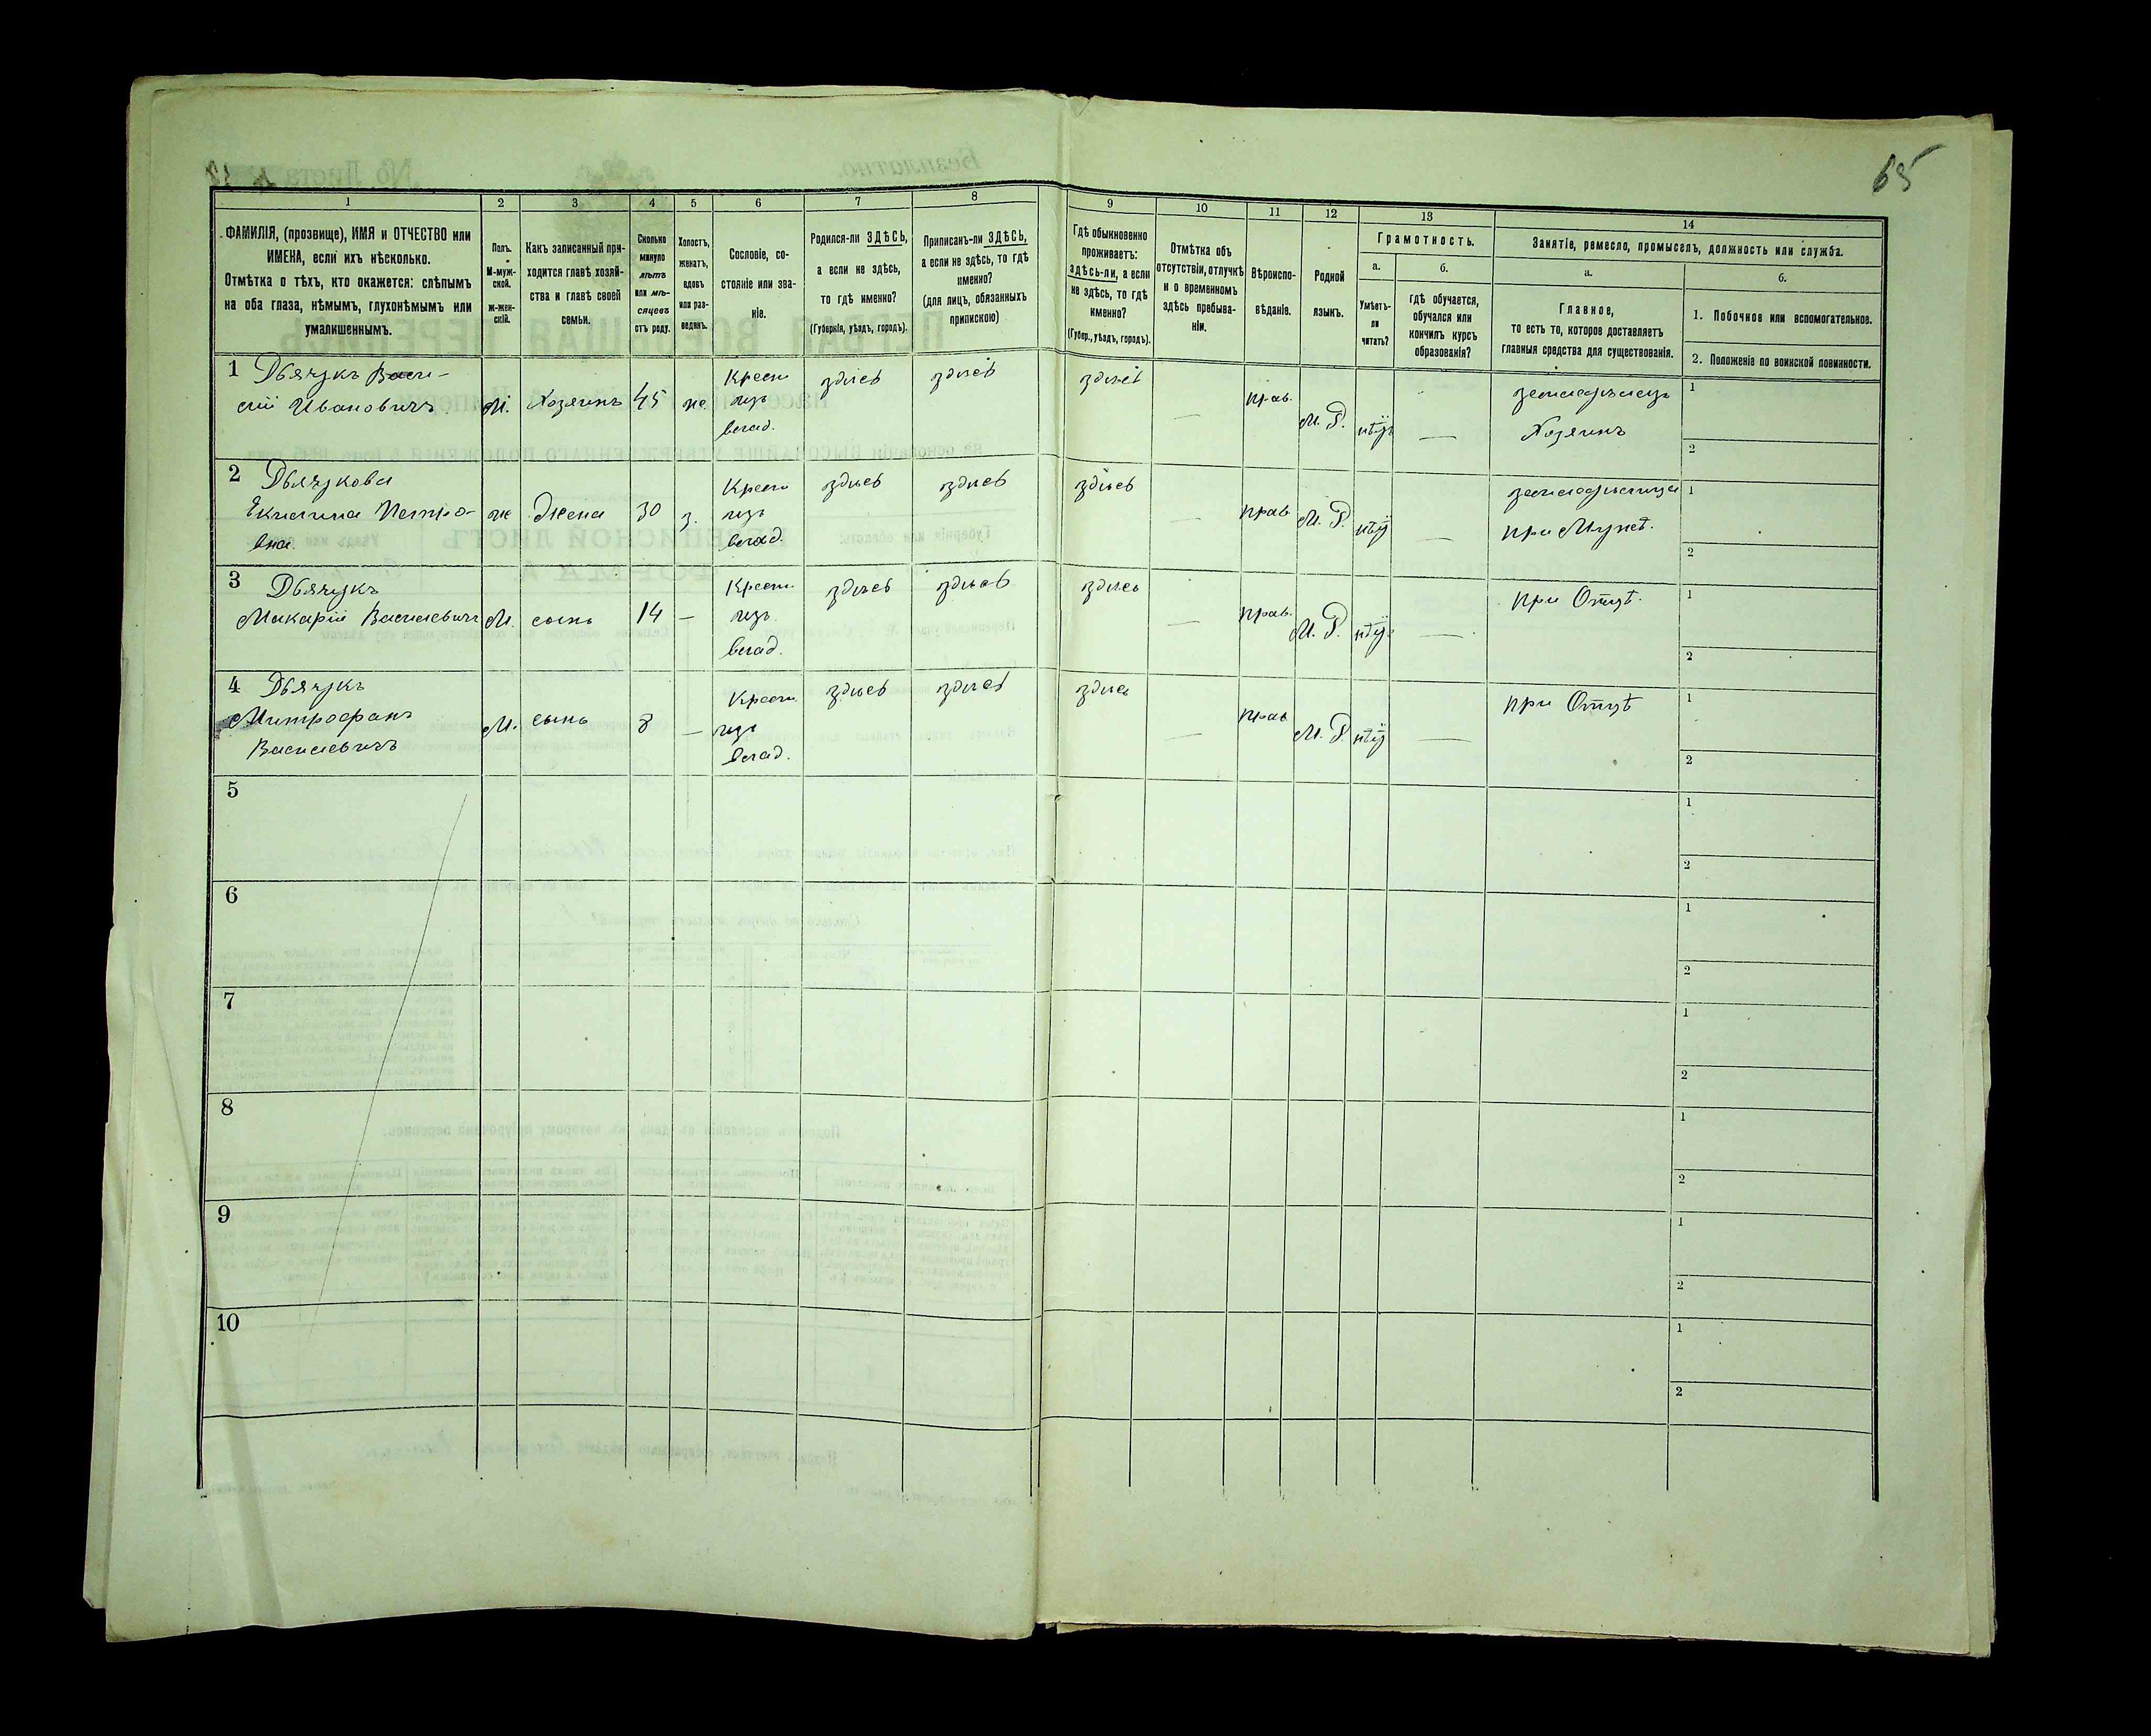 65
1 2 3 4 5 6 7 8 9 10 11 12 13 14
ФАМИЛІЯ, (прозвище), ИМЯ и ОТЧЕСТВО или
ИМЕНА, если ихъ нѣсколько.
Отмѣтка о тѣхъ, кто окажется: слѣпымъ
на оба глаза, нѣмымъ, глухонѣмымъ или
умалишеннымъ.
Полъ.
М-муж-
ской.
ж-жен-
скій.
Какъ записанный при-
ходится главѣ хозяй-
ства и главѣ своей
семьи.
Сколько
минуло
лѣтъ
или мѣ-
сяцевъ
отъ роду.
Холостъ,
женатъ,
вдовъ
или раз-
веденъ.
Сословіе, со-
стояніе или зва-
ніе.
Родился-ли ЗДѢСЬ,
а если не здѣсь,
то гдѣ именно?
(Губернія, уѣздъ, городъ).
Приписанъ-ли ЗДѢСЬ,
а если не здѣсь, то гдѣ
именно?
(для лицъ, обязанныхъ
припискою)
Гдѣ обыкновенно
проживаетъ:
здѣсь-ли, а если
не здѣсь, то гдѣ
именно?
(Губер., уѣздъ, городъ).
Отмѣтка объ
отсутствіи, отлучкѣ
и о временномъ
здѣсь пребыва-
ніи.
Вѣроиспо-
вѣданіе.
Родной
языкъ.
Грамотность.
а.
Умѣетъ-
ли
читать?
б.
гдѣ обучается,
обучался или
кончилъ курсъ
образованія?
Занятіе, ремесло, промыселъ, должность или служба.
а.
Главное,
то есть то, которое доставляетъ
главныя средства для существованія.
б.
1. Побочное или вспомогательное.
2. Положеніе по воинской повинности.
1 Дьячукъ Васи-
лій Ивановичъ
М. Хозяинъ 45 же.
Крест.
изъ
влад.
здѣсь здѣсь здѣсь — прав. М. Р. нѣтъ —
земледѣлецъ
Хозяинъ
1
2
2 Дьячукова
Петро-
вна.
ж Жена 30 з.
Крест.
изъ
влад.
здѣсь здѣсь здѣсь — прав. М. Р. нѣтъ —
земледѣлица
при Мужѣ.
1
2
3 Дьячукъ
Макарій Василевичъ
М. сынъ 14 —
Крест.
изъ
влад.
здѣсь здѣсь здѣсь — прав. М. Р. нѣтъ —
при Отцѣ.
1
2
4 Дьячукъ
Митрофанъ
Василевичъ
М. сынъ 8 —
Крест.
изъ
влад.
здѣсь здѣсь здѣсь — прав М. Р. нѣтъ —
при Отцѣ
1
2
5
1
2
6
1
2
7
1
2
8
1
2
9
1
2
10
1
2